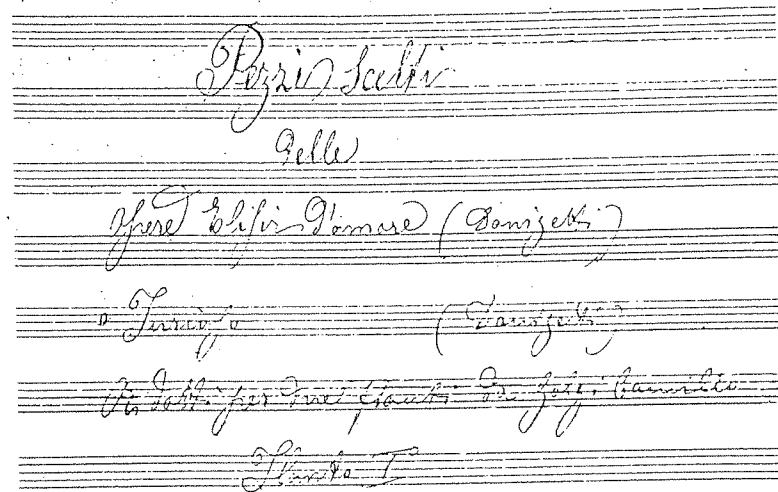 Pezzi Scelti
Delle
Opere Elisir D'amore (Donizetti)
(Donizetti)
Ridotti per due flauti Da Camillo
Flauto I°